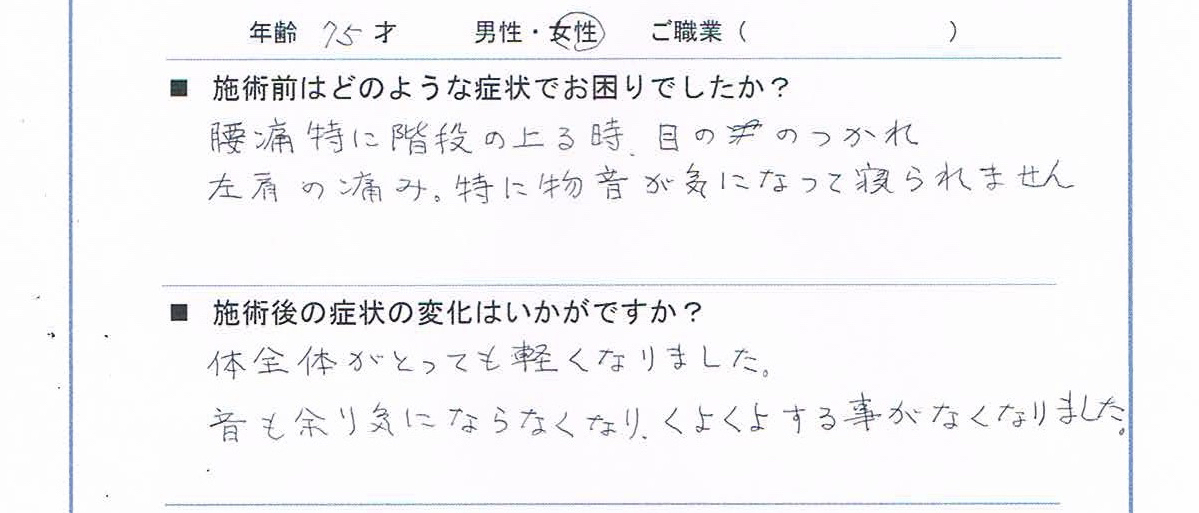 年齢 75 才 男性・女性 ご職業（ ）
■ 施術前はどのような症状でお困りでしたか？
腰痛特に階段の上る時、目の のつかれ
左肩の痛み。特に物音が気になって寝られません
■ 施術後の症状の変化はいかがですか？
体全体がとっても軽くなりました。
音も余り気にならなくなり、くよくよする事がなくなりました。